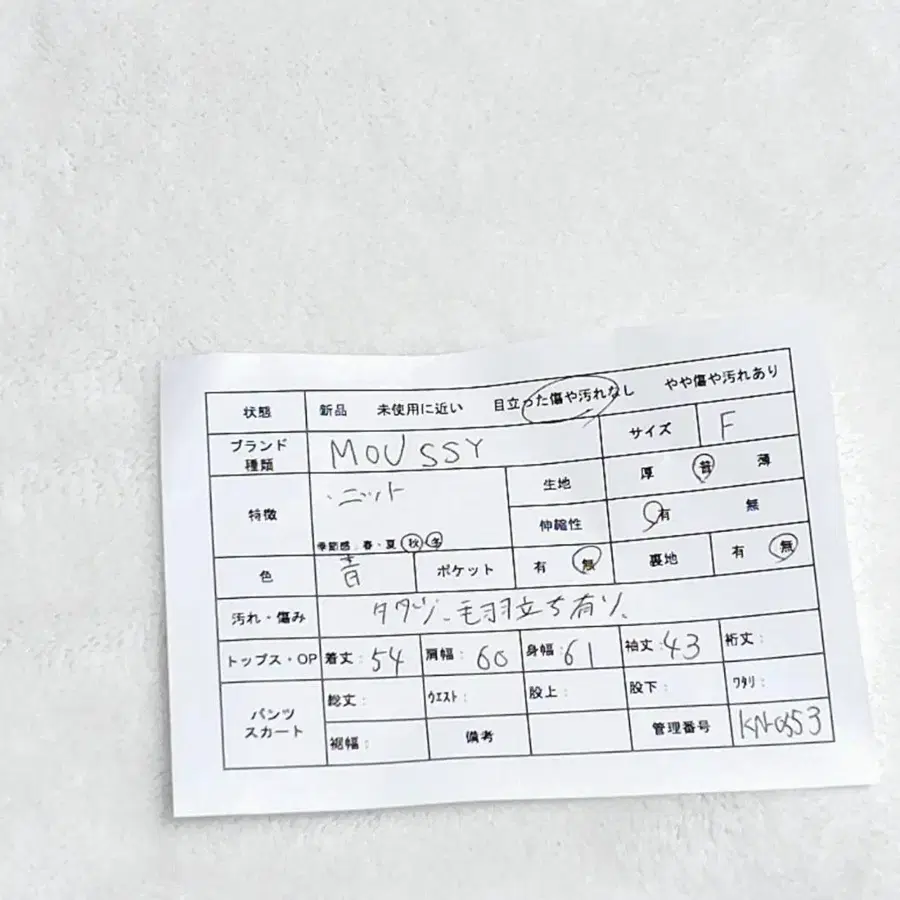 状態 新品 未使用に近い 目立った傷や汚れなし やや傷や汚れあり
ブランド 種類 MOUSSY サイズ F
特徴 ・ニット 生地 厚 普 薄
季節感:春・夏・秋・冬 伸縮性 有 無
色 青 ポケット 有 無 裏地 有 無
汚れ・傷み 毛羽立ち有り、
トップス・OP 着丈:54 肩幅:60 身幅:61 袖丈:43 裄丈:
パンツ スカート 総丈: ウエスト: 股上: 股下: ワタリ:
裾幅: 備考 管理番号